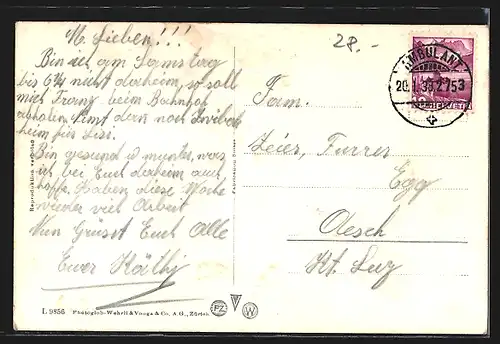 M. Lieben!!!
Bin ich am Samstag
bis 6¼ nicht daheim, so soll
mich Franz beim Bahnhof
abholen. Sonst dann noch
heim für Lisi.
Bin gesund u munter, was
ich bei Euch daheim auch
hoffe. Haben diese Woche
wieder viel Arbeit
Nun Grüsst Euch Alle
Euer Käthy
28.-
AMBULANT
20.I.36.2753
HELVETIA
Fam.
Zeier, Furrer
Egg
Aesch
Kt. Luz
Reproduktion verboten
Fabrication Suisse
L 9856 Photoglob-Wehrli & Vouga & Co. A G., Zürich
PZ
V
W